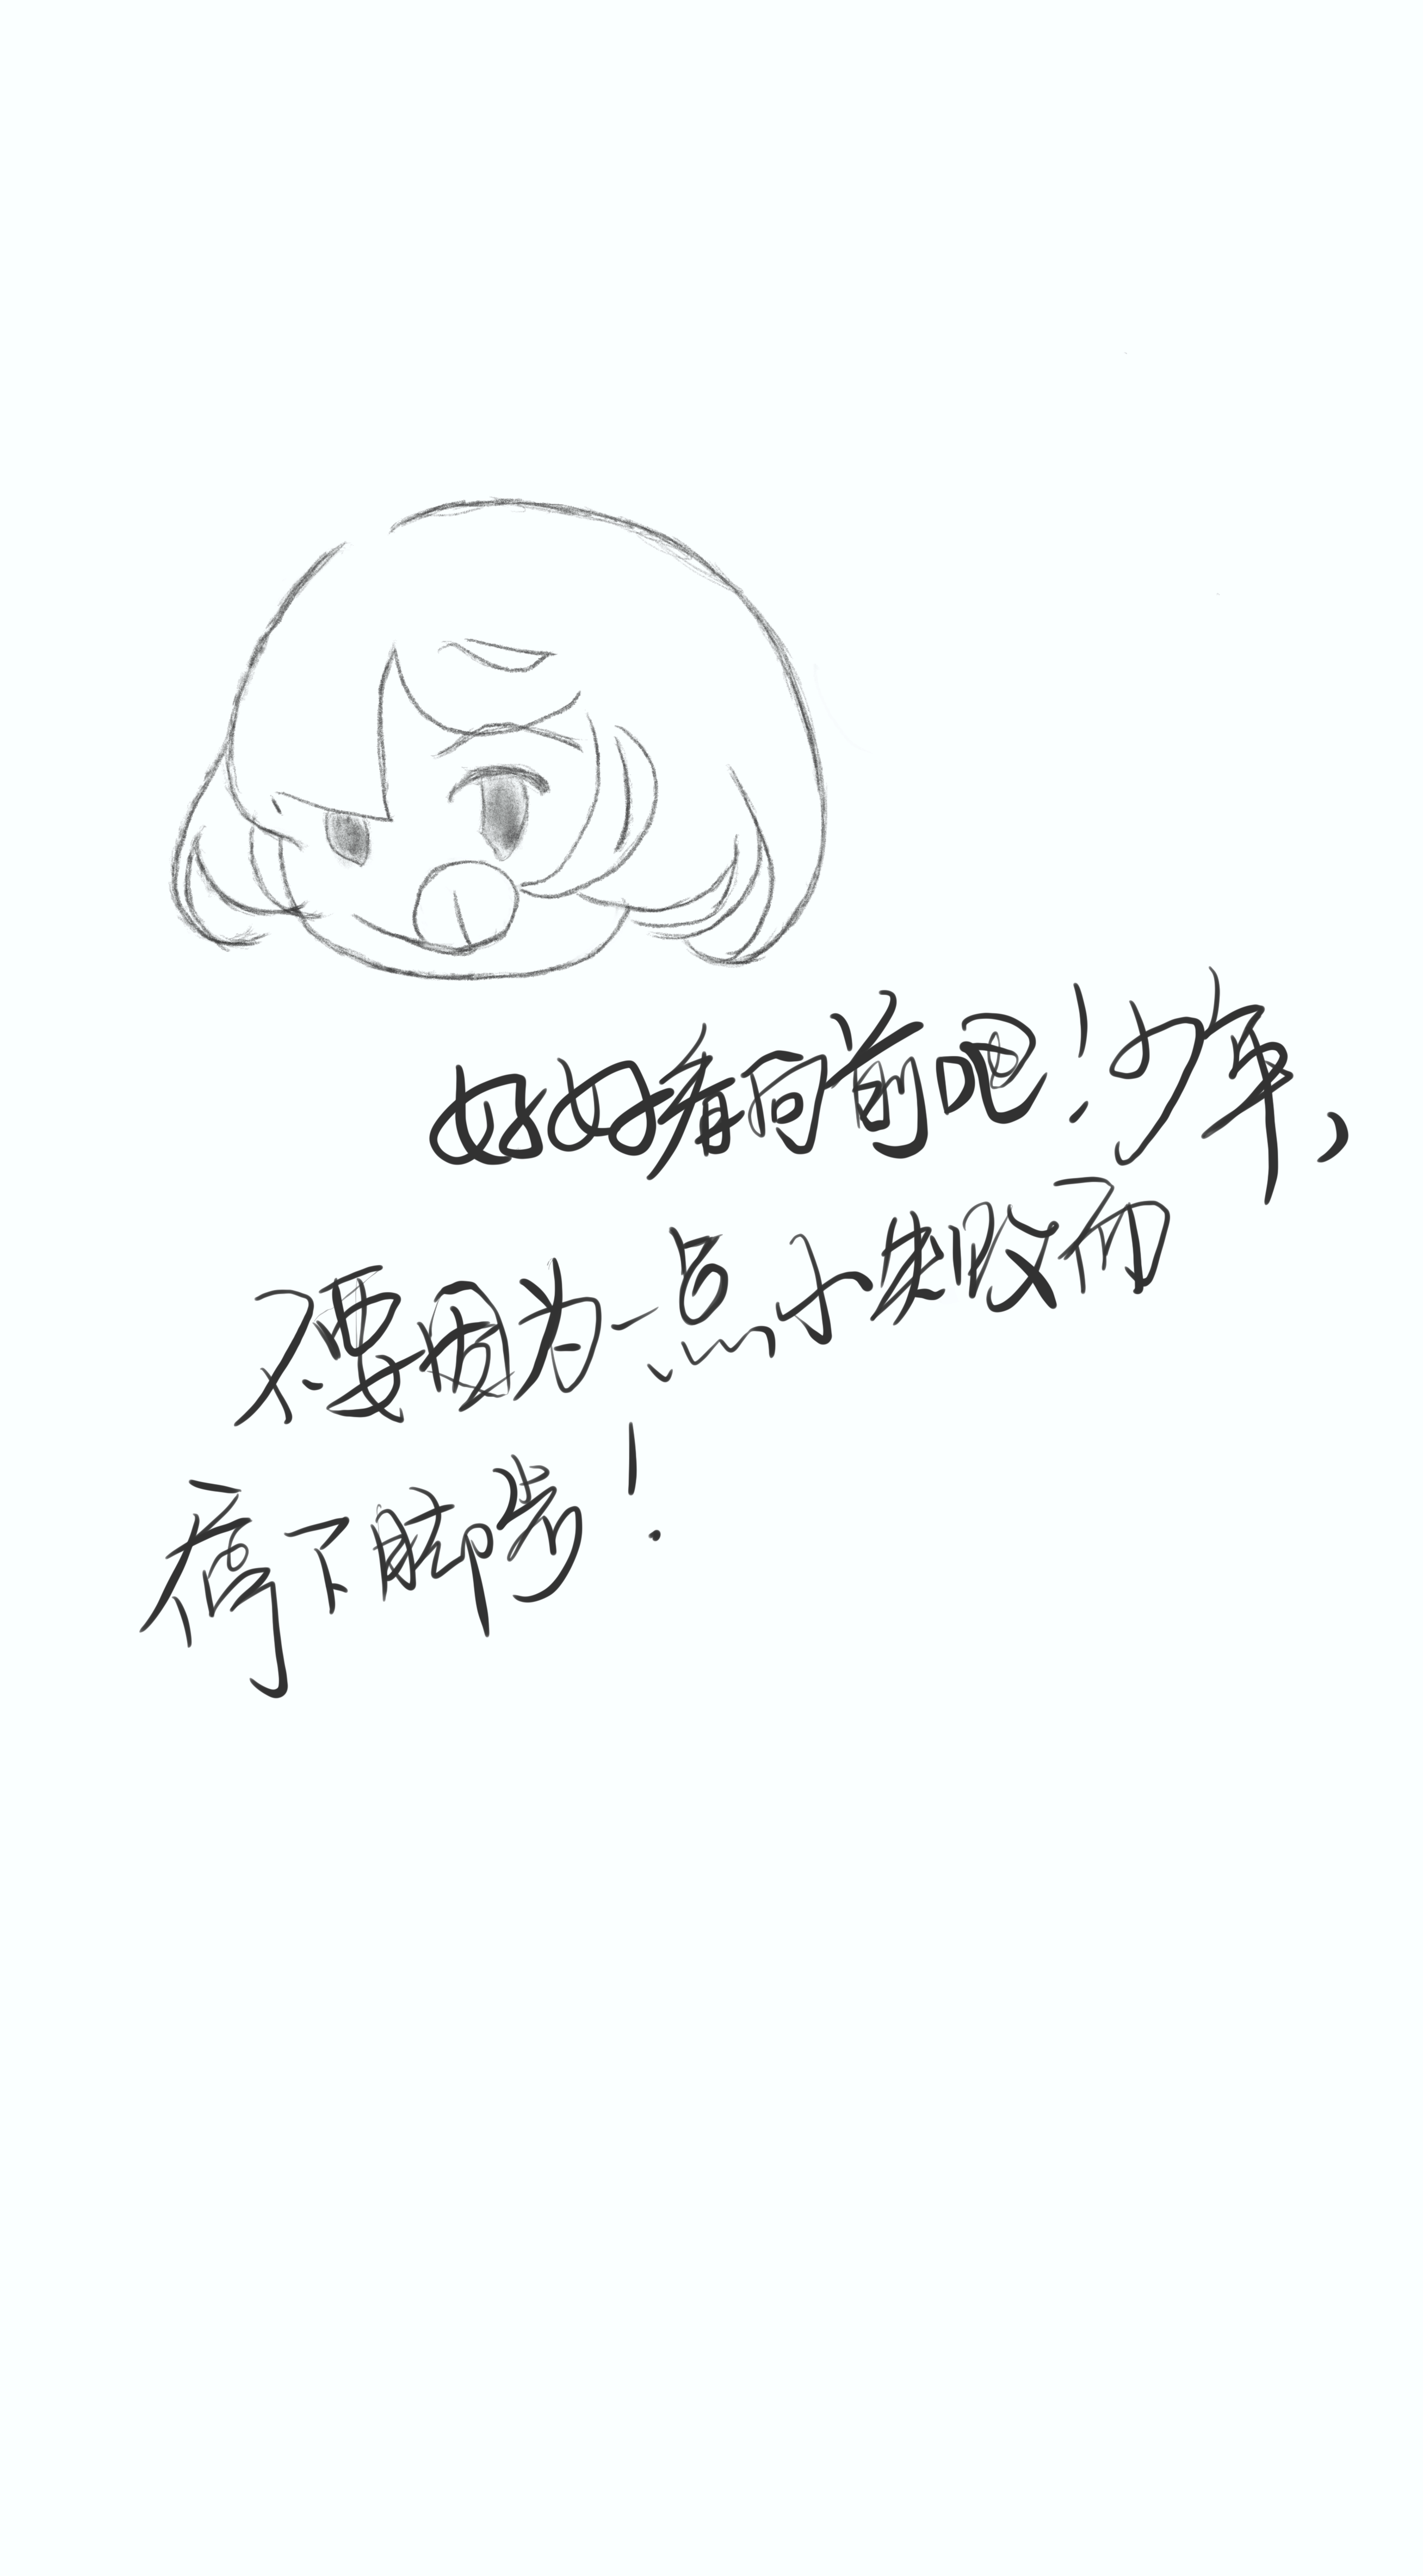 好好看向前吧！少年，
不要因为一点小失败而
停下脚步！